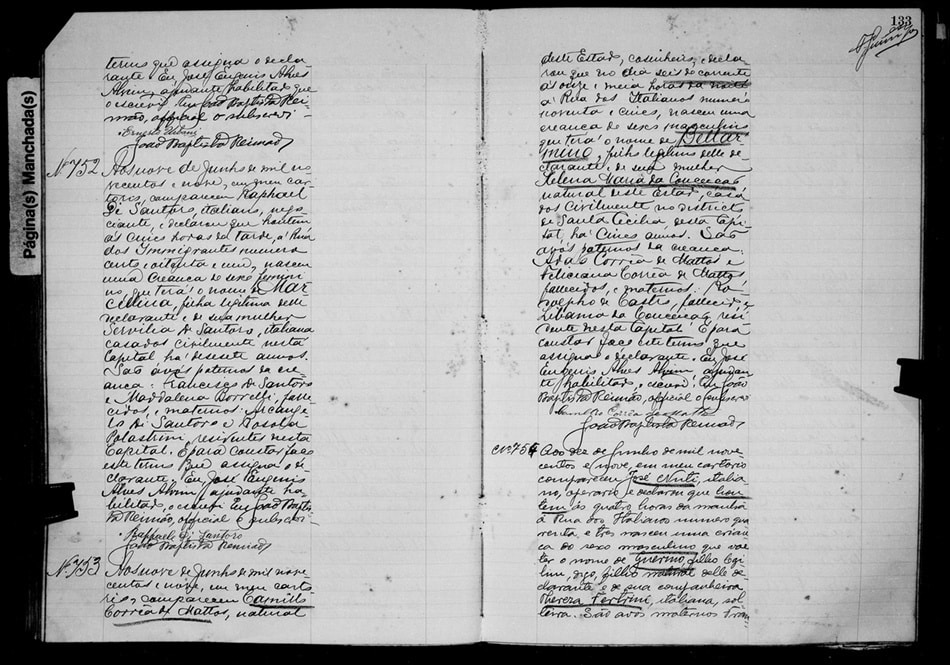 Página(s) Manchada(s)
termo que assigna o decla-
rante Eu, José Eugenio Alves
Alvim, ajudante habilitado que
o escrevi. Eu João Baptista Rei-
mão, official o subscrevi -
Ernesto
João Baptista Reimão
Nº 752
Aos nove de Junho de mil no
vecentos e nove, em meu car-
torio, compareceu Raphael
Di Santoro, italiano, nego
ciante, e declarou que hontem
ás cinco horas da tarde, á Rua
dos Immigrantes numero
cento e oitenta e um, nasceu
uma creança de sexo femini
no, que terá o nome de Mar
cellina, filha legitima delle
declarante e de sua mulher
Servilia Di Santoro, italiana
casados civilmente nesta
Capital ha desesete annos.
São avós paternos da cre-
ança: Francisco Di Santoro
e Maddalena Borrelli, falle-
cidos, e maternos: Arcange-
lo Di Santoro e Rosa
Polastrini, residentes nesta
Capital. E para constar faço
este termo que assigna o de-
clarante. Eu, José Eugenio
Alves Alvim, ajudante ha-
bilitado, o escrevi Eu João Bapti-
sta Reimão, official o subscrevi -
Raffaele Di Santoro
João Baptista Reimão
Nº 753
Aos nove de Junho de mil nove
centos e nove, em meu carto
rio, compareceu Camillo
Corrêa de Mattos, natural
133
deste Estado, cosinheiro, e decla-
rou que no dia seis do corrente
ás onze e meia horas da noite
á Rua dos Italianos numero
noventa e cinco, nasceu uma
creança de sexo masculino
que terá o nome de Bellar
mino, filho legitimo delle de-
clarante e de sua mulher
Helena Maria da Conceição
natural deste Estado, casa
dos civilmente no districto
de Santa Cecilia desta Capi-
tal ha cinco annos. São
avós paternos da creança
Corrêa de Mattos e
Feliciana Corrêa de Mattos
fallecidos, e maternos: Ro-
dolpho de Castro, fallecido, e
Libania da Conceição, resi
dente nesta Capital. E para
constar faço este termo que
assigna o declarante. Eu, José
Eugenio Alves Alvim, ajudan
te habilitado, o escrevi. Eu João
Baptista Reimão, official o subscrevi
Camillo Corrêa de Mattos
João Baptista Reimão
Nº 754
Aos dez de Junho de mil nove
centos e nove, em meu cartorio
compareceu José, italia
no, operario e declarou que hon
tem ás quatro horas da manhã
á Rua dos Italianos numero qua
renta e tres nasceu uma crian
ça do sexo masculino que vae
ter o nome de Guerino, filho legi
timo, digo, filho natural delle de
clarante e de sua companheira
Thereza Fertrini, italiana, sol
teira. São avós maternos Fran